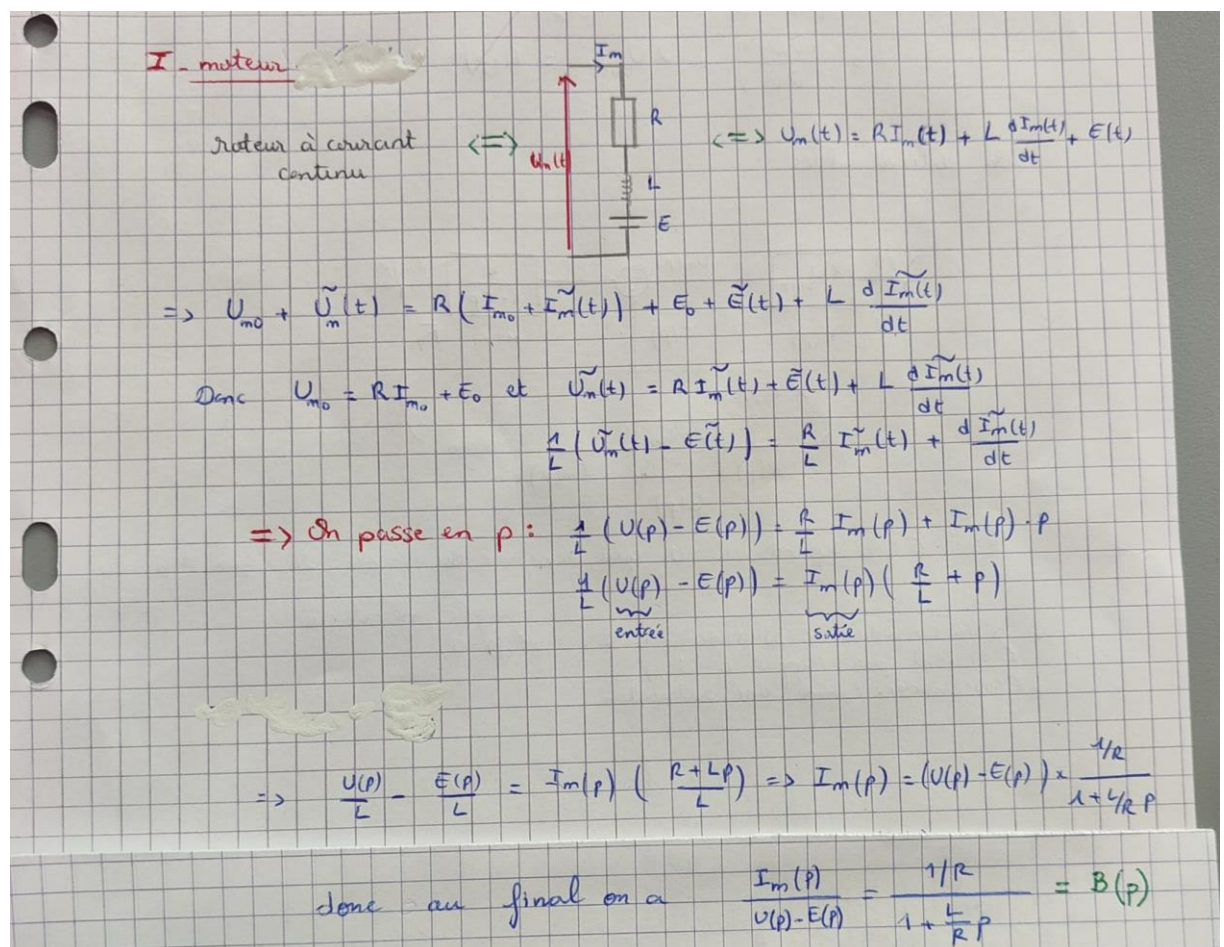 I - moteur
Im
R
roteur à courant <=> Um(t) <=> Um(t) = R Im(t) + L dIm(t)/dt + E(t)
continu
L
E
=> Um0 + Ũm(t) = R ( Im0 + Ĩm(t) ) + E0 + Ẽ(t) + L dĨm(t)/dt
Donc Um0 = R Im0 + E0 et Ũm(t) = R Ĩm(t) + Ẽ(t) + L dĨm(t)/dt
1/L ( Ũm(t) - Ẽ(t) ) = R/L Ĩm(t) + dĨm(t)/dt
=> On passe en p : 1/L (U(p) - E(p)) = R/L Im(p) + Im(p) . p
1/L (U(p) - E(p)) = Im(p) ( R/L + p)
entrée sortie
=> U(p)/L - E(p)/L = Im(p) ( (R+Lp)/L ) => Im(p) = (U(p) - E(p)) × (1/R)/(1 + L/R p)
donc au final on a Im(p)/(U(p)-E(p)) = (1/R)/(1 + L/R p) = B(p)